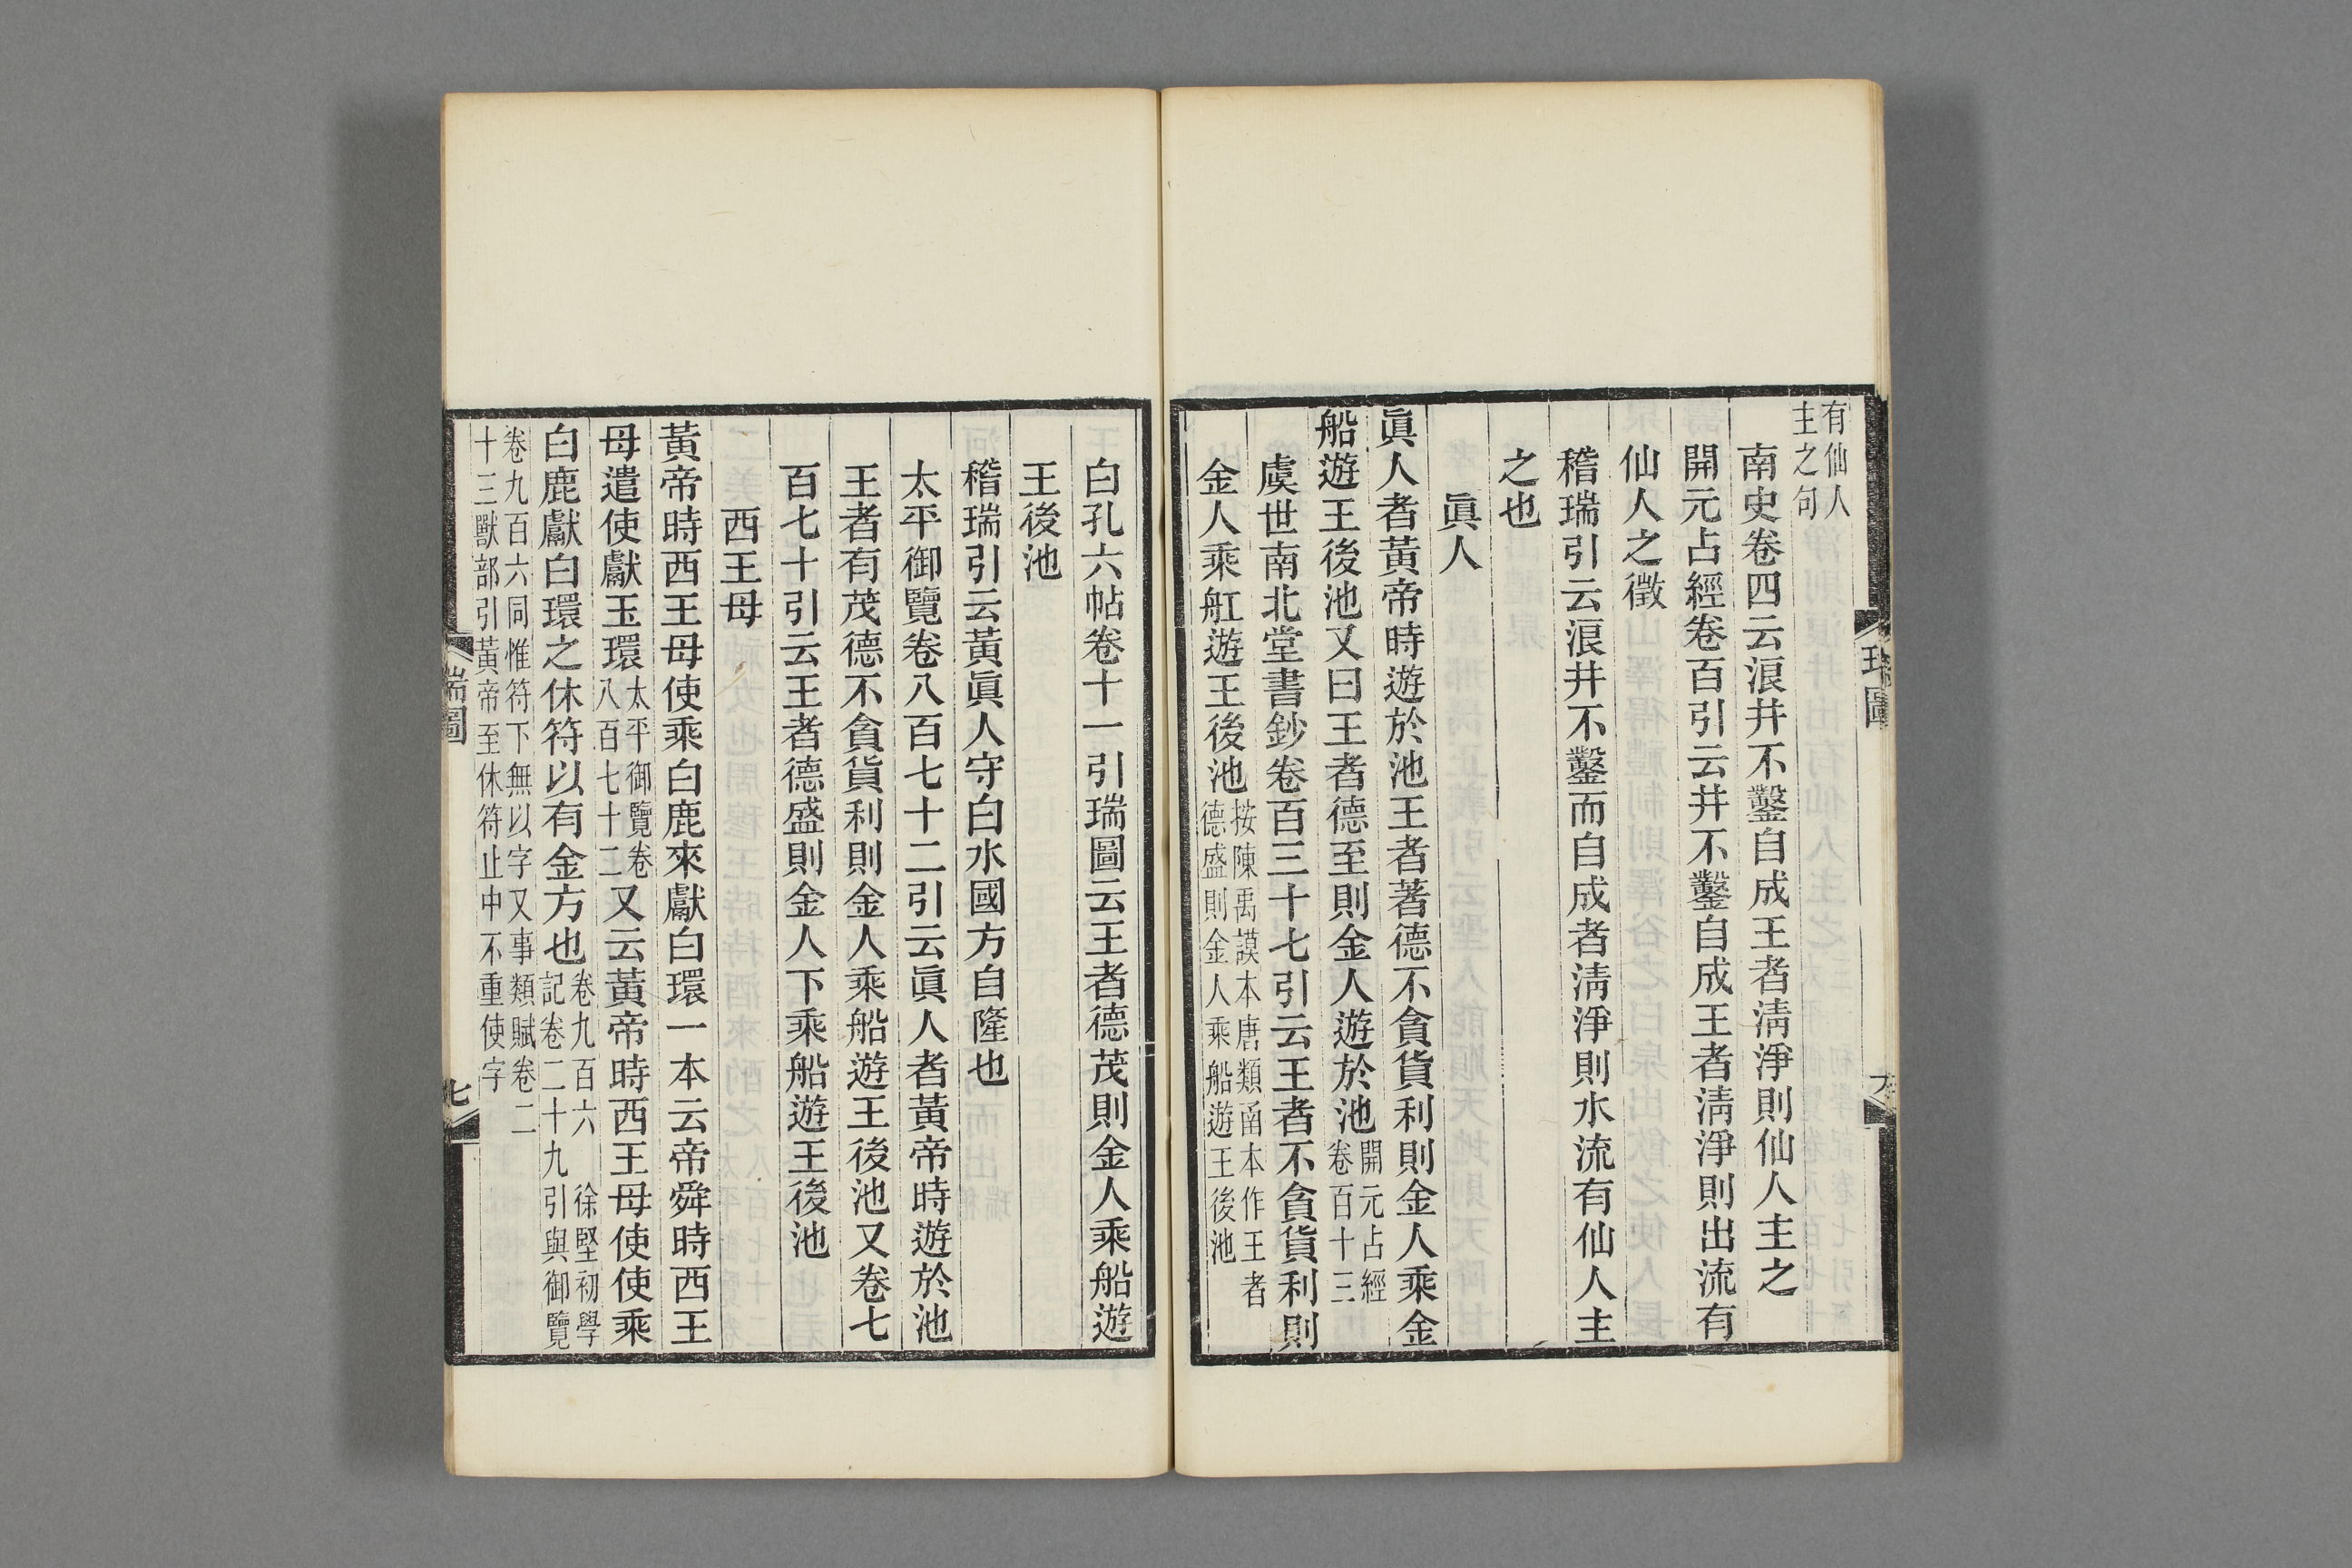 有仙人
主之句
南史卷四云浪井不鑿自成王者淸淨則仙人主之
開元占經卷百引云井不鑿自成王者淸淨則出流有
仙人之徵
稽瑞引云浪井不鑿而自成者淸淨則水流有仙人主
之也
眞人
眞人者黃帝時遊於池王者著德不貪貨利則金人乘金
船遊王後池又曰王者德至則金人遊於池開元占經卷百十三
虞世南北堂書鈔卷百三十七引云王者不貪貨利則
金人乘舡遊王後池按陳禹謨本唐類函本作王者德盛則金人乘船遊王後池
瑞圖
六
白孔六帖卷十一引瑞圖云王者德茂則金人乘船遊
王後池
稽瑞引云黃眞人守白水國方自隆也
太平御覽卷八百七十二引云眞人者黃帝時遊於池
王者有茂德不貪貨利則金人乘船遊王後池又卷七
百七十引云王者德盛則金人下乘船遊王後池
西王母
黃帝時西王母使乘白鹿來獻白環一本云帝舜時西王
母遣使獻玉環太平御覽卷八百七十二又云黃帝時西王母使使乘
白鹿獻白環之休符以有金方也卷九百六 徐堅初學記卷二十九引與御覽
卷九百六同惟符下無以字又事類賦卷二
十三獸部引黃帝至休符止中不重使字
瑞圖
七